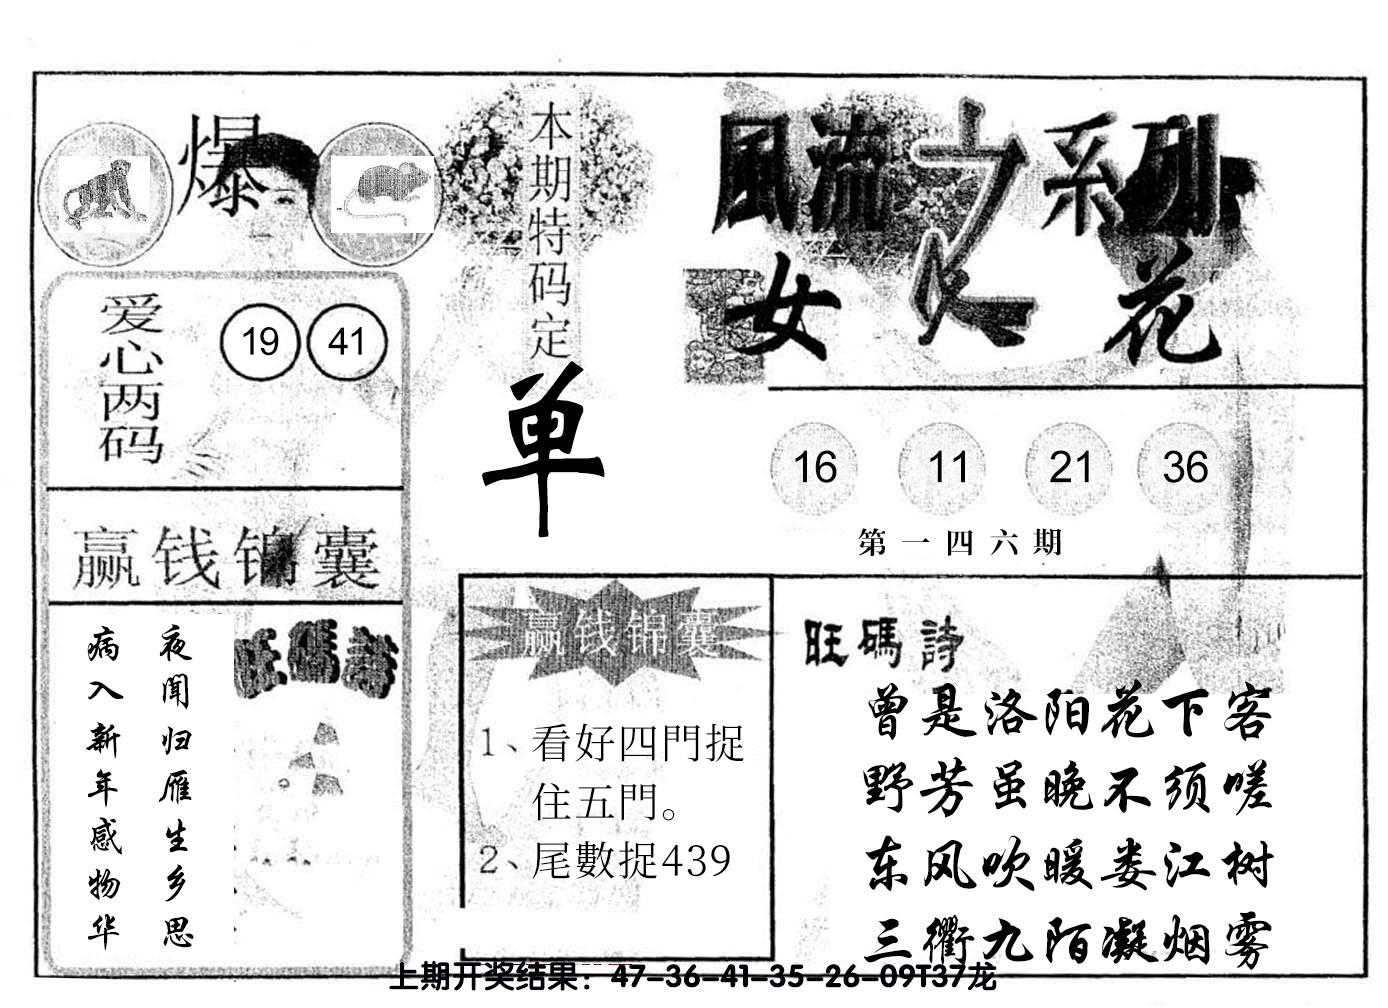 爆
本期特码定
单
風流之系列
女人花
爱心两码
19 41
赢钱锦囊
夜闻归雁生乡思
病入新年感物华
旺碼詩
16 11 21 36
第一四六期
赢钱锦囊
1、看好四門捉
住五門。
2、尾數捉439
旺碼詩
曾是洛阳花下客
野芳虽晚不须嗟
东风吹暖娄江树
三衢九陌凝烟雾
上期开奖结果：47-36-41-35-26-09T37龙